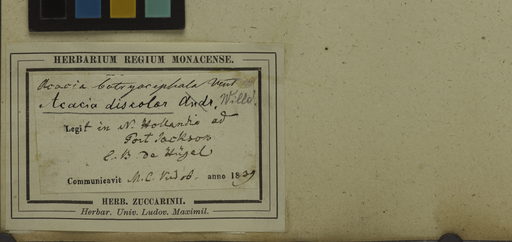 HERBARIUM REGIUM MONACENSE.
Acacia botryocephala Vent
Acacia discolor Andr. Willd.
Legit in N. Hollandia ad
Port Jackson
C. B. De Hügel
Communicavit M. C. Vindob. anno 1839
HERB. ZUCCARINII.
Herbar. Univ. Ludov. Maximil.